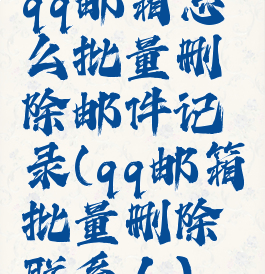 qq邮箱怎
么批量删
除邮件记
录(qq邮箱
批量删除
联系人)